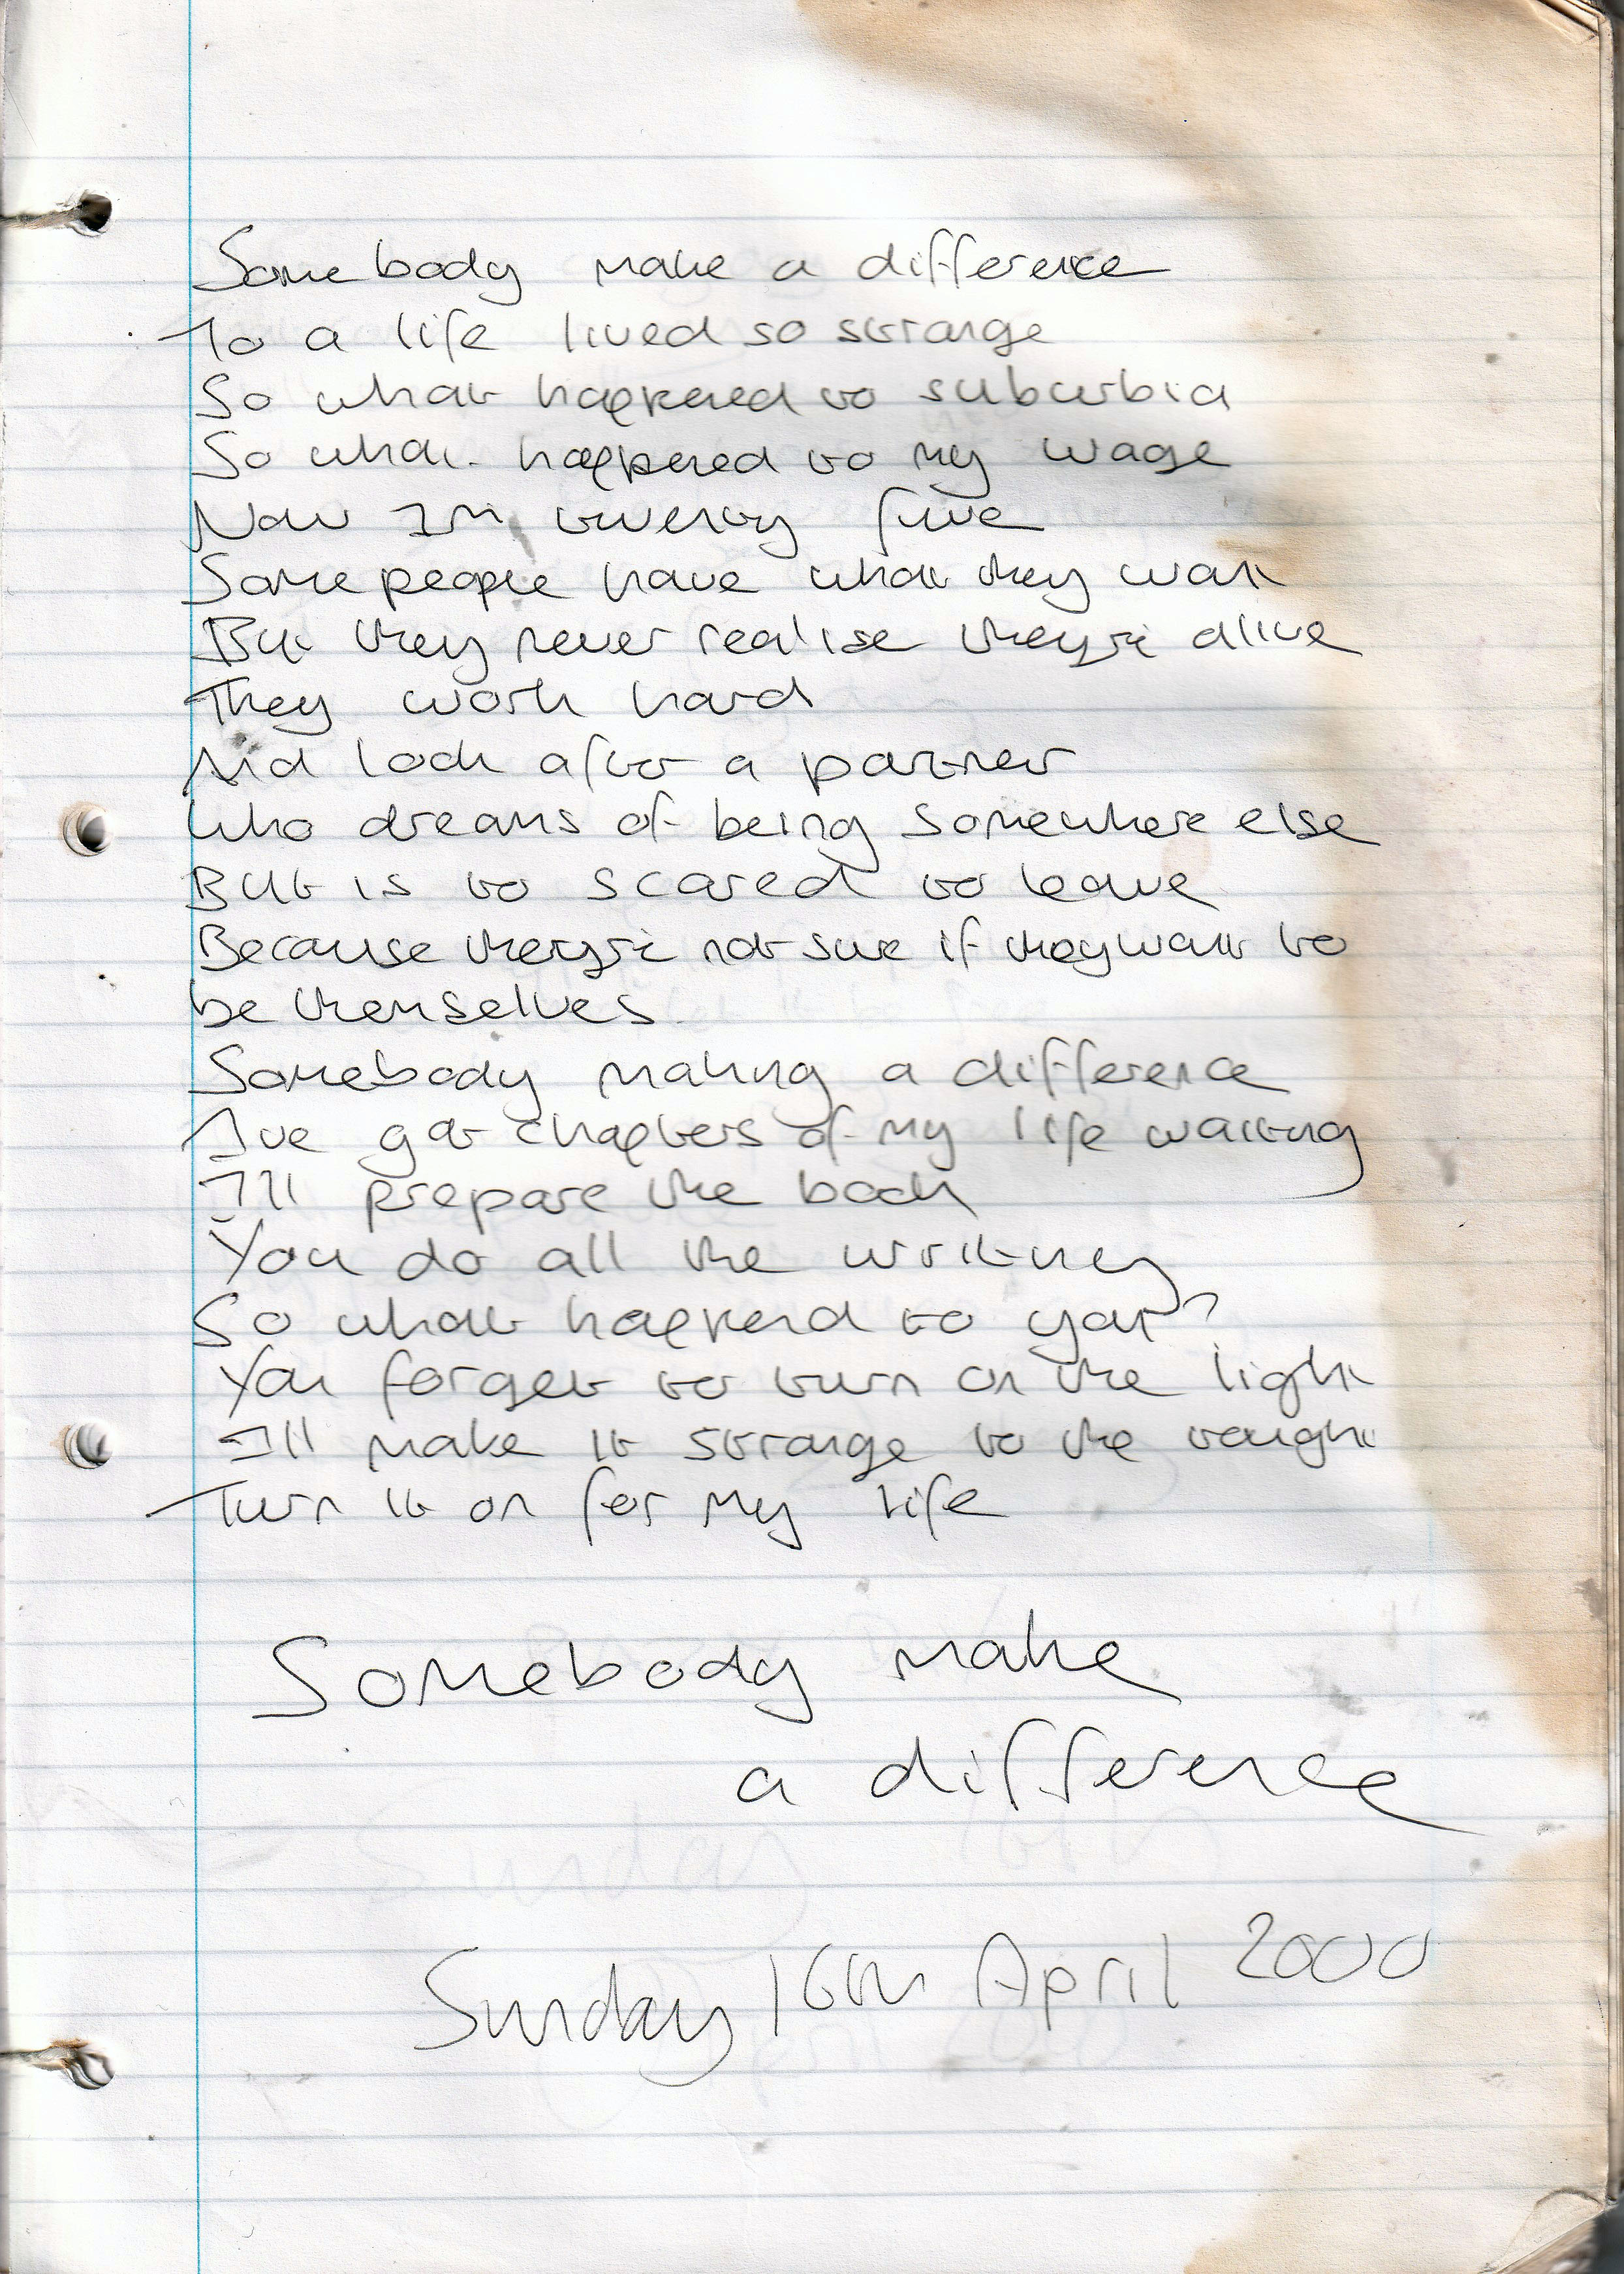 Somebody make a difference
To a life lived so strange
So what happened to suburbia
So what happened to my wage
Now Im twenty five
Some people have what they want
But they never realise theyre alive
They work hard
And look after a partner
Who dreams of being somewhere else
But is to scared to leave
Because theyre not sure if they want to
be themselves
Somebody making a difference
Ive got chapters of my life waiting
I'll prepare the book
You do all the writing
So what happend to you?
You forget to turn on the light
I'll make it strange to the
Turn it on for my life
Somebody make
a difference
Sunday 16th April 2000